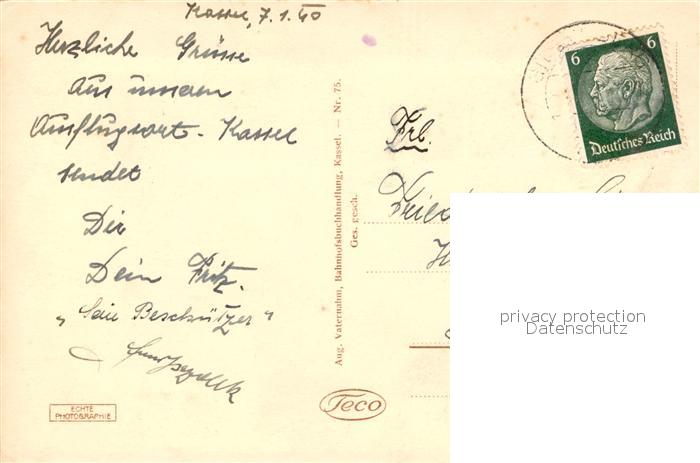 Kassel, 7.1.40
Herzliche Grüsse
aus unserem
Ausflugsort - Kassel
sendet
Dir
Dein Fritz.
„ Beschützer "
Frl.
Aug. Vaternahm, Bahnhofsbuchhandlung, Kassel. — Nr. 75.
Ges. gesch.
6 6
Deutsches Reich
privacy protection
Datenschutz
ECHTE
PHOTOGRAPHIE
Teco